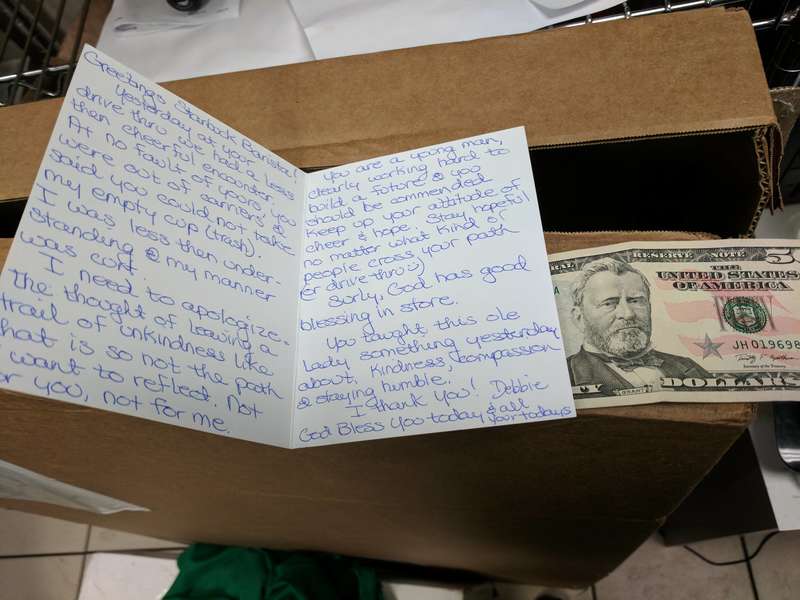 Greetings Starbuck Barista!
Yesterday at your
drive thru we had a less
then cheerful encounter.
At no fault of yours, you
were out of carriers &
said you could not take
my empty cup (trash).
I was less then under-
standing & my manner
was curt.
I need to apologize-
the thought of leaving a
trail of unkindness like
that is so not the path
I want to reflect. Not
for you, not for me.
You are a young man,
clearly working hard to
build a future & you
should be commended
Keep up your attitude of
cheer & hope. Stay hopeful
no matter what kind of
people cross your path
(er drive thru :)
Surly, God has good
blessing in store.
You taught this ole
Lady something yesterday
about kindness, compassion
& staying humble.
I thank you! Debbie
God Bless You today & all
your todays
RESERVE NOTE
THE
UNITED STATES
OF AMERICA
JH019698
Secretary of the Treasury
GRANT
DOLLARS